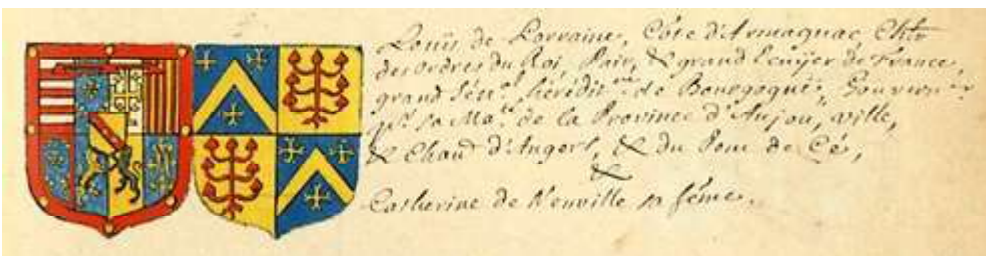 Louis de Lorraine, Côte d'Armagnac, Chlr
des ordres du Roi, Pair, & grand Ecuyer de France,
grand Sénl. hérédit.re de Bourgogne, Gouvern.r
pr. sa Ma.té de la Province d'Anjou, ville,
& Chau d'Angers, & du Pont de Cé,
&
Catherine de Neuville sa fême.